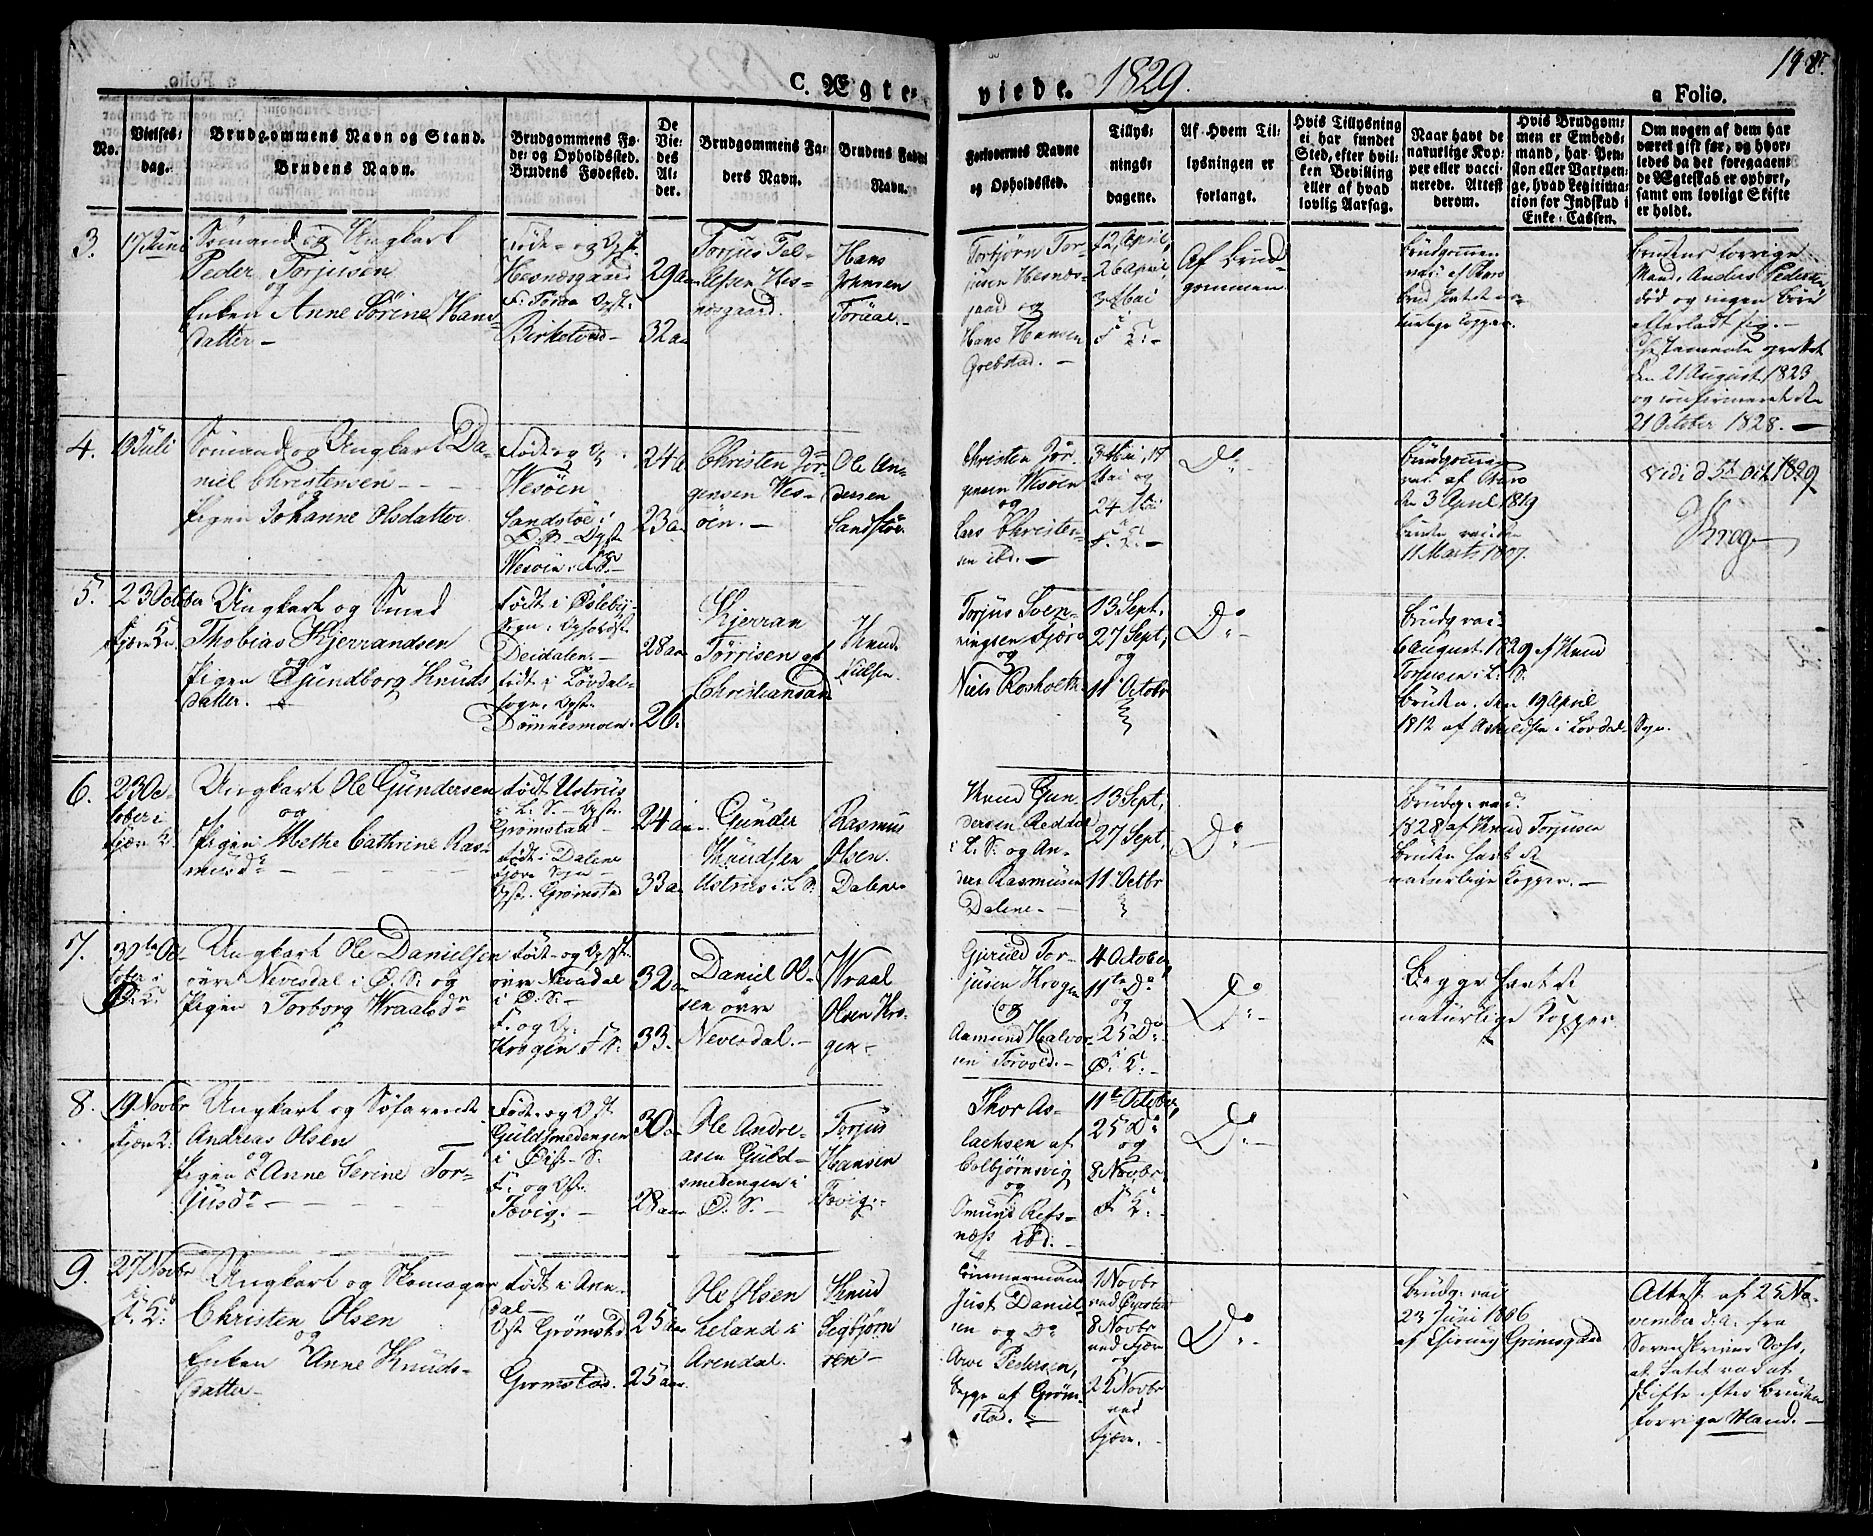 C. Ægte-
viede.
1829.
198.
a Folio.
No.
Vielses-
dag.
Brudgommens Navn og Stand.
Brudens Navn.
Brudgommens Fø-
de- og Opholdssted.
Brudens Fødested.
De
Vie-
des
Al-
der.
Brudgommens Fa-
ders Navn.
Brudens Faders
Navn.
Forlovernes Navne
og Opholdssted.
Tillys-
nings-
dagene.
Af Hvem Til-
lysningen er
forlangt.
Hvis Tillysning
ei har fundet
Sted, efter hvil-
ken Bevilling
eller af hvad
lovlig Aarsag.
Naar havt de
naturlige Kop-
per eller vacci-
nerede. Attest
derom.
Hvis Brudgom-
men er Embeds-
mand, har Pen-
sion eller Vartpen-
ge, hvad Legitima-
tion for Indskud i
Enke-Cassen.
Om nogen af dem har
været gift før, og hvor-
ledes da det foregaaen-
de Ægteskab er ophørt,
samt om lovligt Skifte
er holdt.
3.
17 Juni
Sømand og Ungkarl
Peder Torjusen
og
Enken Anne Sørine Hans-
datter
Føde- og Opst:
Hesnæsgaard
F: Toraa Opst:
Birketved
29 a
32 a
Torjus Tel-
lefsen Hes-
næsgaard.
Hans
Johnsen
Toraae.
Torbjørn Tor-
jusen Hesnæs-
gaard og
Hans Hansen
Grebstad.
12 April,
26 April,
3 Mai
F: K:
Af Brud-
gommen
Brudgommen
vac: af Stero
Brud havt na-
turlige Kopper.
Brudens forrige
Mand, Anders Pedersen,
død og ingen Børn
efterladt sig.
Testamente oprettet
den 21 August 1823
og confirmeret den
21 October 1828.
4.
1 Juli
Sømand og Ungkarl Da-
niel Christensen
og
Pigen Johanne Olsdatter
Født og Op
Wesøen
Sandstøe i
Ø: S: Opst:
Wesøen F: S:
24 a
23 a
Christen Jør-
gensen Wes-
øen.
Ole An-
dersen
Sandstøe
Christen Jør-
gensen Wesøen
og
Lars Christen-
sen ibd.
3 Mai, 17
Mai og
24 Mai
F: K:
Do
Brudgommen
vac: af Stero
den 3 April 1819
Bruden vac: den
11 Marts 1807.
Vidi d 5t Oct 1829
Krog
5.
23 October
Fjære K:
Ungkarl og Smed
Thobias Kjerrandsen
og
Pigen Gundborg Knuds
datter.
Født i Øsleby-
Sogn, Opholdst:
Deidalen.
født i Løvdals
sogn, Opst:
Dømnesmoen.
28 aa
26.
Kjerran
Tørrisen af
Christiansand
Knud
Nilsen.
Torjus Sven-
ningsen Fjære
og
Niels Rosholt
13 Sept,
27 Sept,
og
11 Octobr
Do
Brudg vac:
6 August 1829 af Knud
Torjusen i L: S:
Bruden den 19 April
1812 af Askildsen i Løvdals Sogn.
6.
23 Oc-
tober i
Fjære K:
Ungkarl Ole Gundersen
og
Pigen Methe Cathrine Ras-
musdr
Født Ustrüs
i L: S: Opst:
Grømstad
født i Dalene
Fjære Sogn
Opst: Grømstad
24 aa
33 a
Gunder
Knudsen
Ustrüs i L: S:
Rasmus
Olsen
Dalene
Knud Gun-
dersen Reddal
i L: S: og An-
ders Rasmusen
Dalene
13 Sept,
27 Sept,
11 Octbr
Do
Brudg: vac:
1828 af Knud Torjusen
Bruden havt de
naturlige Kopper.
7.
30te Oc-
tober i
Ø: K:
Ungkarl Ole Danielsen
øvre Nevesdal i Ø: S: og
Pigen Torborg Wraalsdr
født og Opst:
øvre Nevesdal
i Ø: S:
F. og Op:
Krogen F: S:
32 a
33.
Daniel Ol-
sen øvre
Nevesdal.
Wraal
Olsen Kro-
gen
Gjeruld Tor-
jusen Krogen
og
Aamund Halvor-
sen Torvold.
4 October,
11te Do
og
25 Do
Ø: K:
Do
Begge havt de
naturlige Kopper
8.
19 Novbr
Fjære K:
Ungkarl og Søfarende
Andreas Olsen
og
Pigen Anne Serine Tor-
jusdr
Født og Opst:
Guldsmedengen
i Øst: S:
F. og Opst:
Fævig.
30 a
28 aa
Ole Andre-
asen Guld-
smedengen i
Ø: S:
Torjus
Hansen
Fævig.
Thor As-
lachsen af
Colbjørnsvig
og
Omund Refs-
næss ibd.
11te October,
25 Do
og
8 Novbr
F: K:
Do
9.
27 Novbr
F: K:
Ungkarl og Skomager
Christen Olsen
og
Enken Anne Knuds-
datter
Født i Aren-
dal
Opst: Grømstad
Grømstad.
25 aa
25 aa
Ole Olsen
Leland i
Arendal.
Knud
Segbjørn-
sen
Tømmermand
Just Daniel-
sen og Do
Arve Pedersen,
begge af Grøm-
stad.
1 Novbr
ved Øyestad
8 Novbr
ved Fjære
og
22 Novbr
ved
Fjære.
Do
Brudg: vac:
23 Juni 1806
af Chirurg Grimsgaard
Attest af 25 No-
vember d. A. fra
Sorenskriver Dahl,
at intet var at
skifte efter Bruden
forrige Mand.